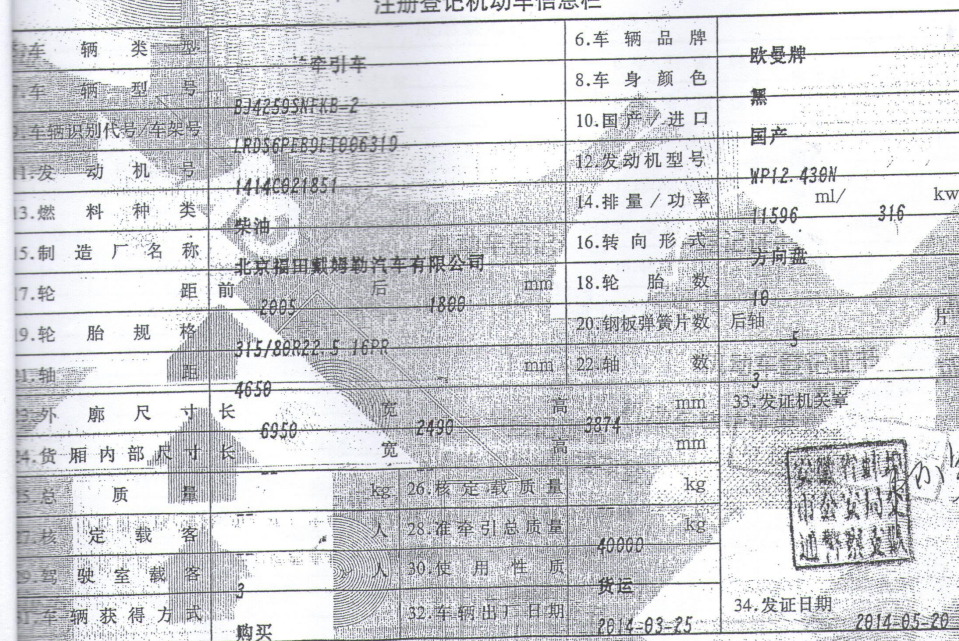 注册登记机动车信息栏
5.车辆类型 牵引车 6.车辆品牌 欧曼牌
7.车辆型号 BJ4259SNFKB-2 8.车身颜色 黑
9.车辆识别代号/车架号 10.国产/进口 国产
11.发动机号 1414C021851 12.发动机型号 WP12.430N
13.燃料种类 柴油 14.排量/功率 11596 ml/ 316 kw
15.制造厂名称 北京福田戴姆勒汽车有限公司 16.转向形式 方向盘
17.轮距 前 2005 后 1800 mm 18.轮胎数 10
19.轮胎规格 315/80R22.5 16PR 20.钢板弹簧片数 后轴 5 片
21.轴距 4650 mm 22.轴数 3
23.外廓尺寸 长 6950 宽 2490 高 3874 mm 33.发证机关章
24.货厢内部尺寸 长 -- 宽 -- 高 -- mm
25.总质量 -- kg 26.核定载质量 -- kg
27.核定载客 -- 人 28.准牵引总质量 40000 kg
29.驾驶室载客 3 人 30.使用性质 货运
31.车辆获得方式 购买 32.车辆出厂日期 2014-03-25 34.发证日期 2014-05-20